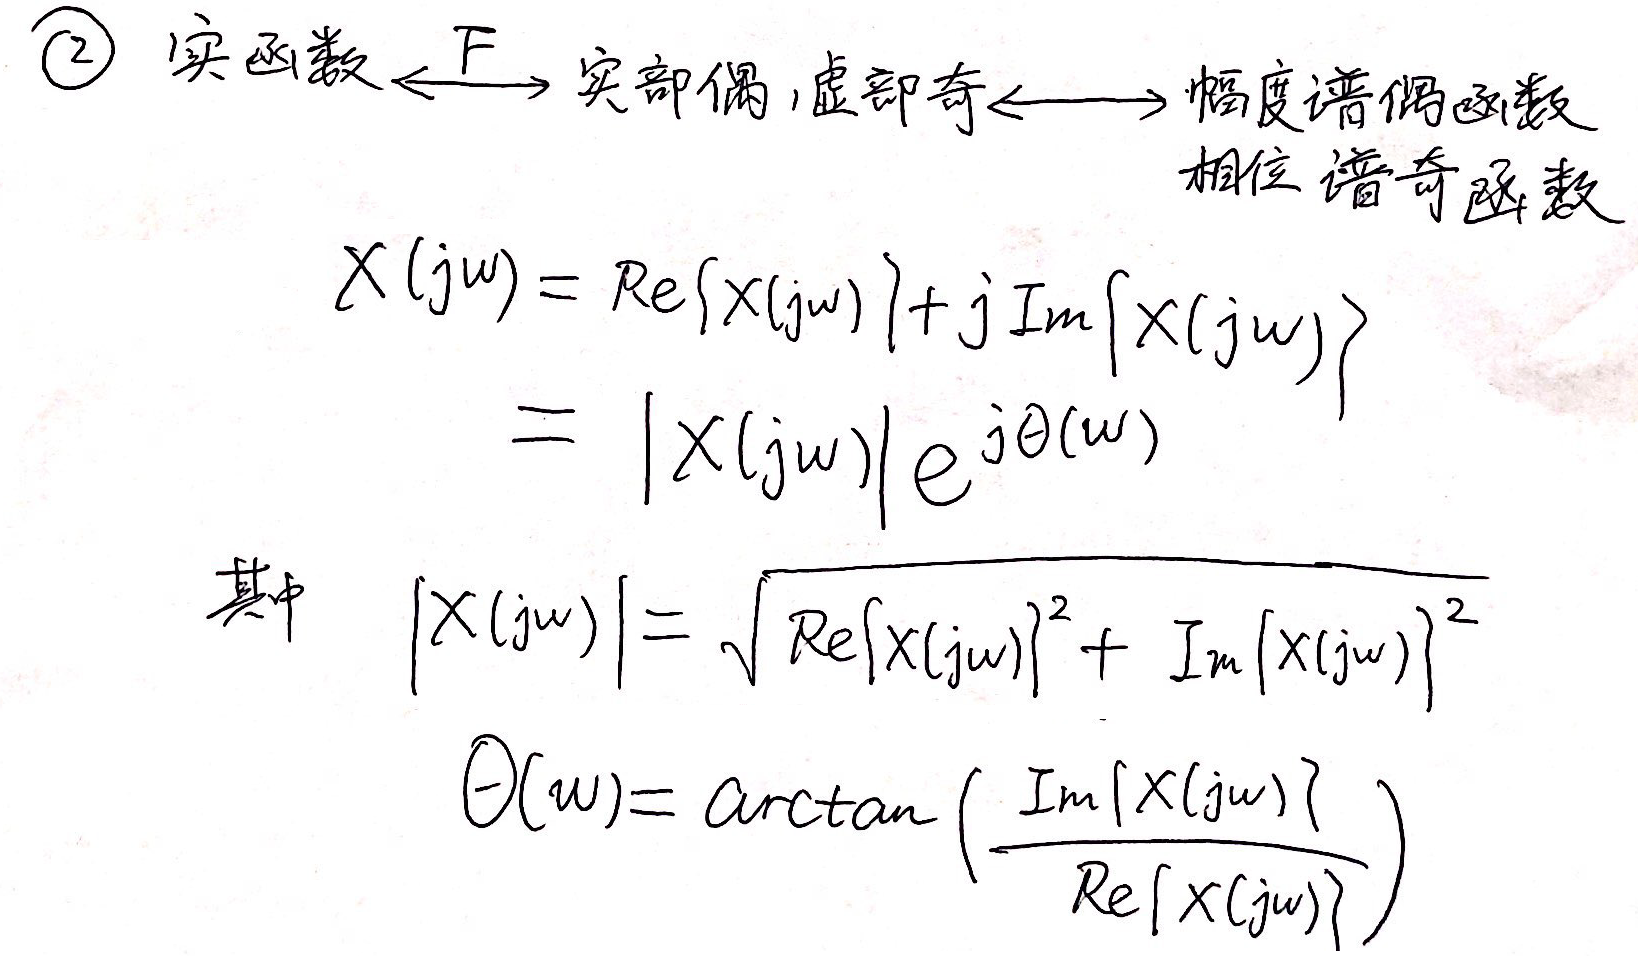 ② 实函数 ⟷F 实部偶,虚部奇 ⟷ 幅度谱偶函数
相位谱奇函数
X(jw) = Re{X(jw)} + j Im{X(jw)}
= |X(jw)| e^{jθ(w)}
其中 |X(jw)| = √(Re{X(jw)}² + Im{X(jw)}²)
θ(w) = arctan ( Im{X(jw)} / Re{X(jw)} )